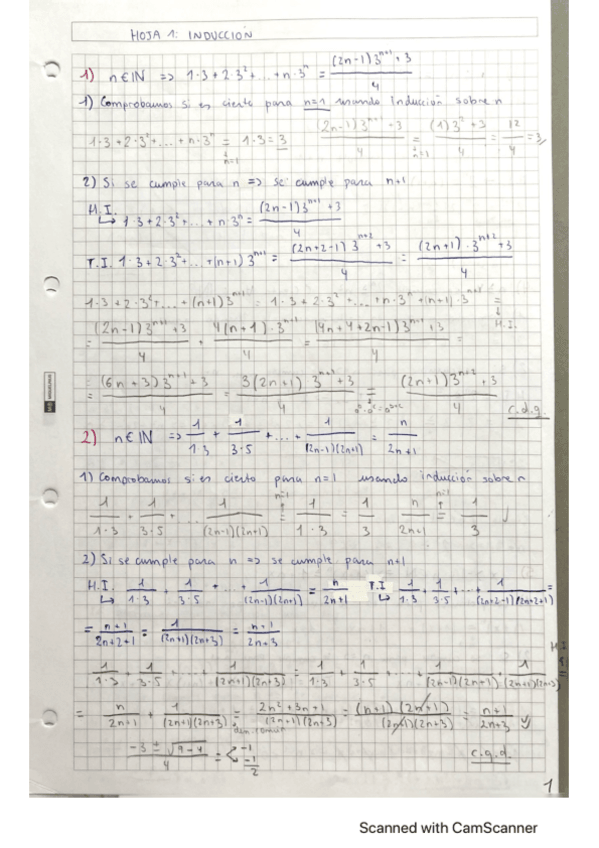 HOJA 1: INDUCCIÓN
1) n∈ℕ => 1·3+2·3²+...+n·3ⁿ = ((2n-1)3ⁿ⁺¹+3)/4
1) Comprobamos si es cierto para n=1 usando inducción sobre n
1·3+2·3²+...+n·3ⁿ = (n=1) 1·3 = 3   ((2n-1)3ⁿ⁺¹+3)/4 = (n=1) ((1)3²+3)/4 = 12/4 = 3
2) Si se cumple para n => se cumple para n+1
H.I. ↳ 1·3+2·3²+...+n·3ⁿ = ((2n-1)3ⁿ⁺¹+3)/4
T.I. 1·3+2·3²+...+(n+1)3ⁿ⁺¹ = ((2n+2-1)3ⁿ⁺²+3)/4 = ((2n+1)·3ⁿ⁺²+3)/4
1·3+2·3²+...+(n+1)3ⁿ⁺¹ = 1·3+2·3²+...+n·3ⁿ+(n+1)·3ⁿ⁺¹ = H.I.
= ((2n-1)3ⁿ⁺¹+3)/4 + (4(n+1)·3ⁿ⁺¹)/4 = ((4n+4+2n-1)3ⁿ⁺¹+3)/4 =
= ((6n+3)3ⁿ⁺¹+3)/4 = (3(2n+1)3ⁿ⁺¹+3)/4 = ((2n+1)3ⁿ⁺²+3)/4
c.q.d.
2) n∈ℕ => 1/(1·3) + 1/(3·5) + ... + 1/((2n-1)(2n+1)) = n/(2n+1)
1) Comprobamos si es cierto para n=1 usando inducción sobre n
1/(1·3) + 1/(3·5) + ... 1/((2n-1)(2n+1)) = (n=1) 1/(1·3) = 1/3   n/(2n+1) = (n=1) 1/3 ✓
2) Si se cumple para n => se cumple para n+1
H.I. ↳ 1/(1·3) + 1/(3·5) + ... + 1/((2n-1)(2n+1)) = n/(2n+1)   T.I. ↳ 1/(1·3) + 1/(3·5) + ... + 1/((2n+2-1)(2n+2+1)) =
= (n+1)/(2n+2+1) = 1/((2n+1)(2n+3)) = (n+1)/(2n+3)
1/(1·3) + 1/(3·5) + ... + 1/((2n+1)(2n+3)) = 1/(1·3) + 1/(3·5) + ... + 1/((2n-1)(2n+1)) + 1/((2n+1)(2n+3)) = H.I.
= n/(2n+1) + 1/((2n+1)(2n+3)) = (den. común) (2n²+3n+1)/((2n+1)(2n+3)) = ((n+1)(2n+1))/((2n+1)(2n+3)) = (n+1)/(2n+3) ✓
(-3±√(9-4))/4 = < -1, -1/2
c.q.d.
1
Scanned with CamScanner